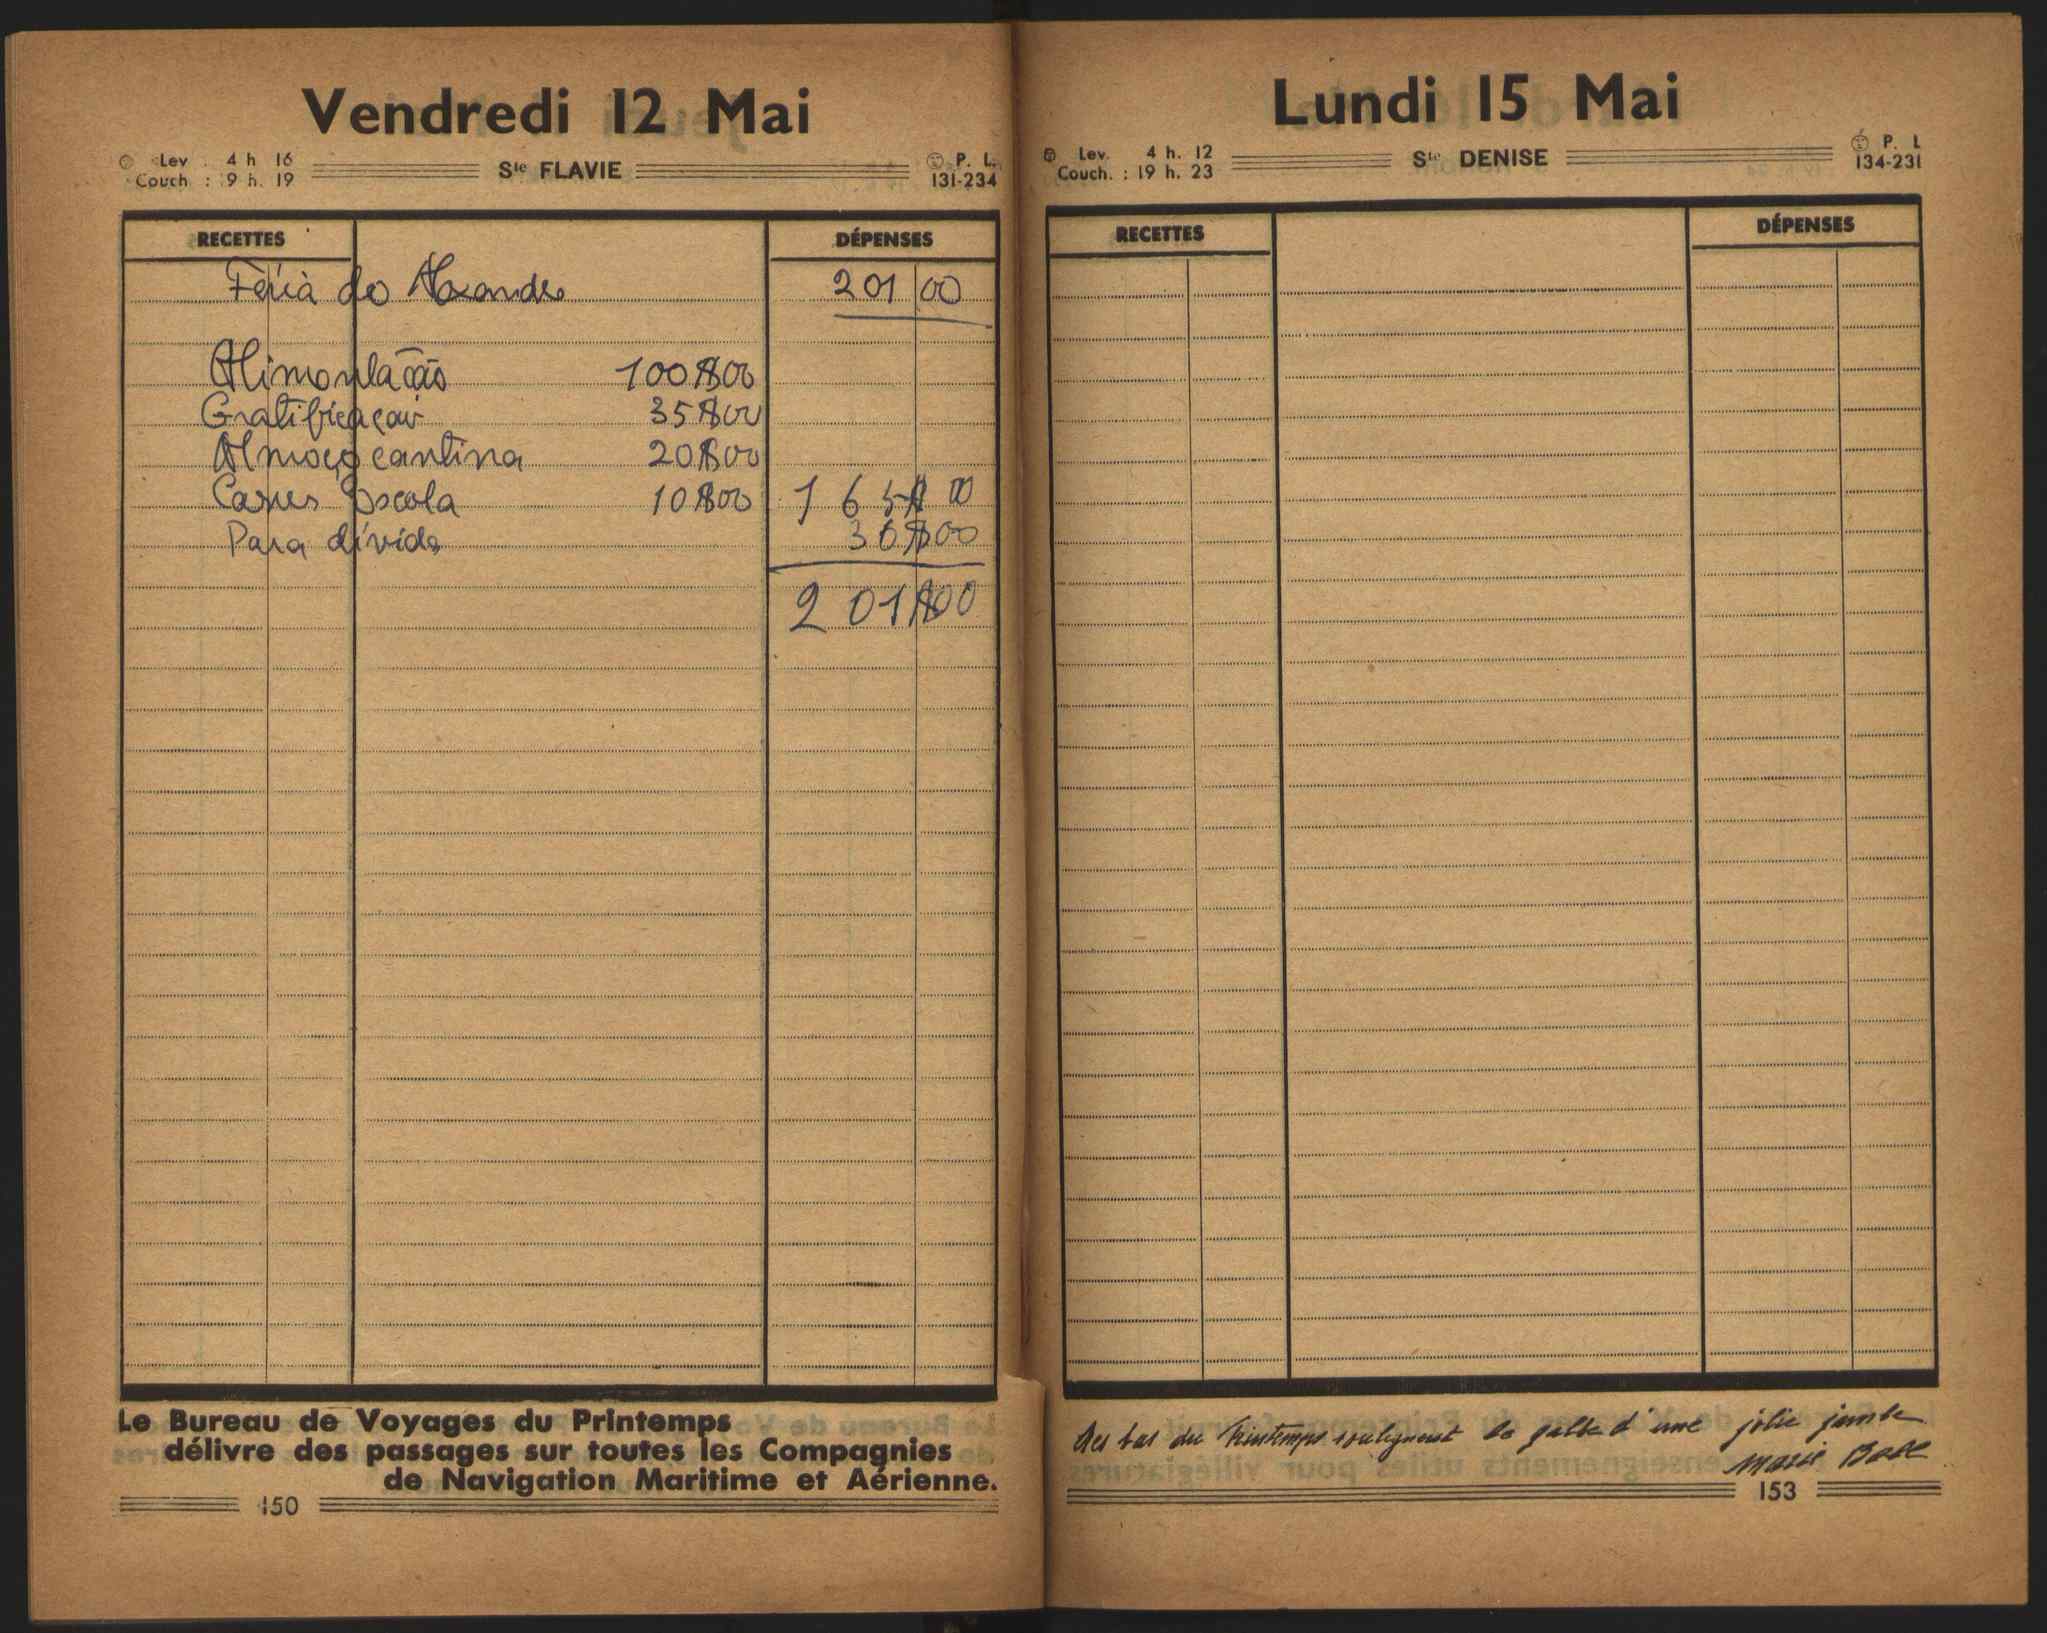 Vendredi 12 Mai
Lev : 4 h 16
Couch : 9 h. 19
Ste FLAVIE
P. L.
131-234
RECETTES
DÉPENSES
Féria do Alexandre 201 00
Alimentação 100$00
Gratificação 35$00
Almoço cantina 20$00
Escola 10$00 165$00
Para dívida 36$00
201$00
Le Bureau de Voyages du Printemps
délivre des passages sur toutes les Compagnies
de Navigation Maritime et Aérienne.
150
Lundi 15 Mai
Lev. 4 h. 12
Couch. : 19 h. 23
Ste DENISE
P. L
134-231
RECETTES
DÉPENSES
Les bas du Printemps soulignent le galbe d'une jolie jambe
Marie Bell
153